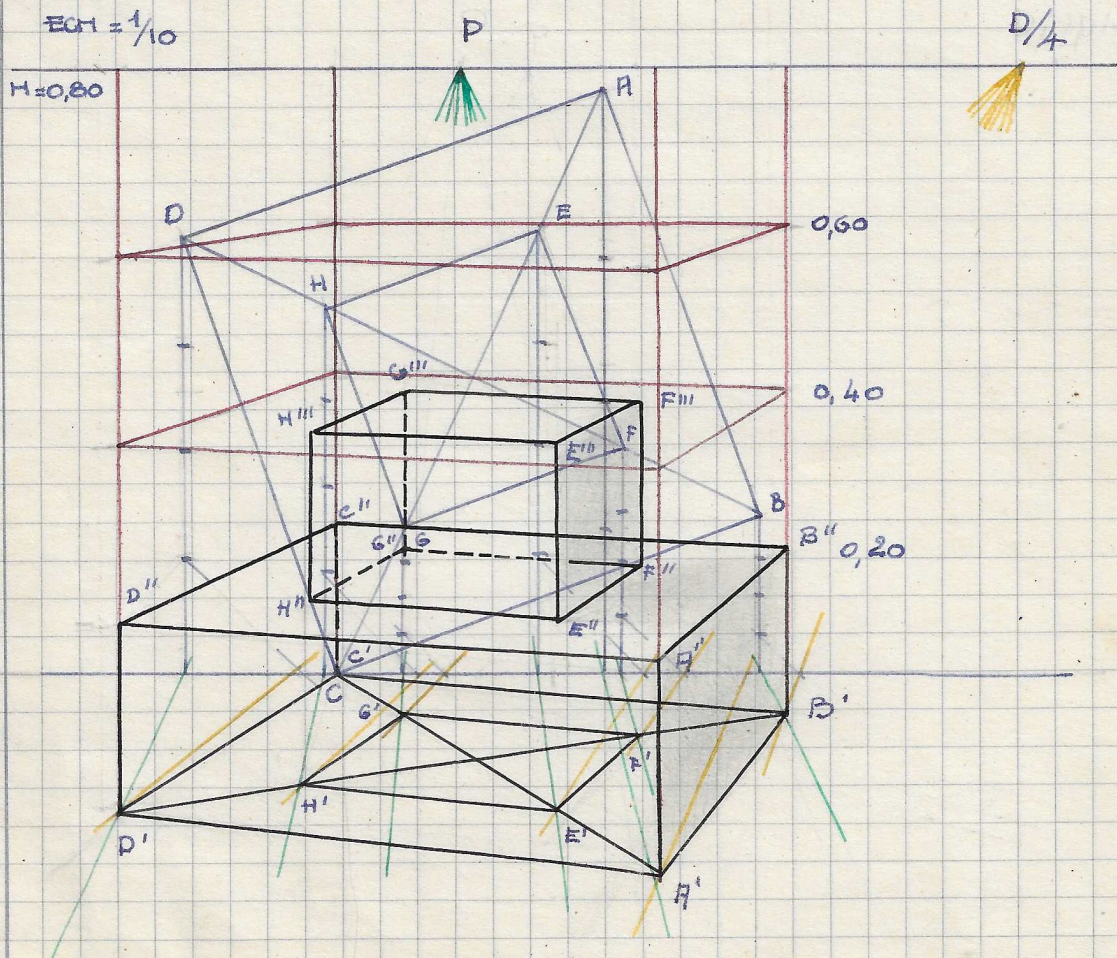 ECH = 1/10
P
D/4
H=0,80
A
D
E
0,60
H
G'''
0,40
H'''
F'''
E'''
F
B
C''
G''
G
B''
0,20
D''
H''
F''
E''
C'
A''
C
G'
B'
F'
H'
E'
D'
A'